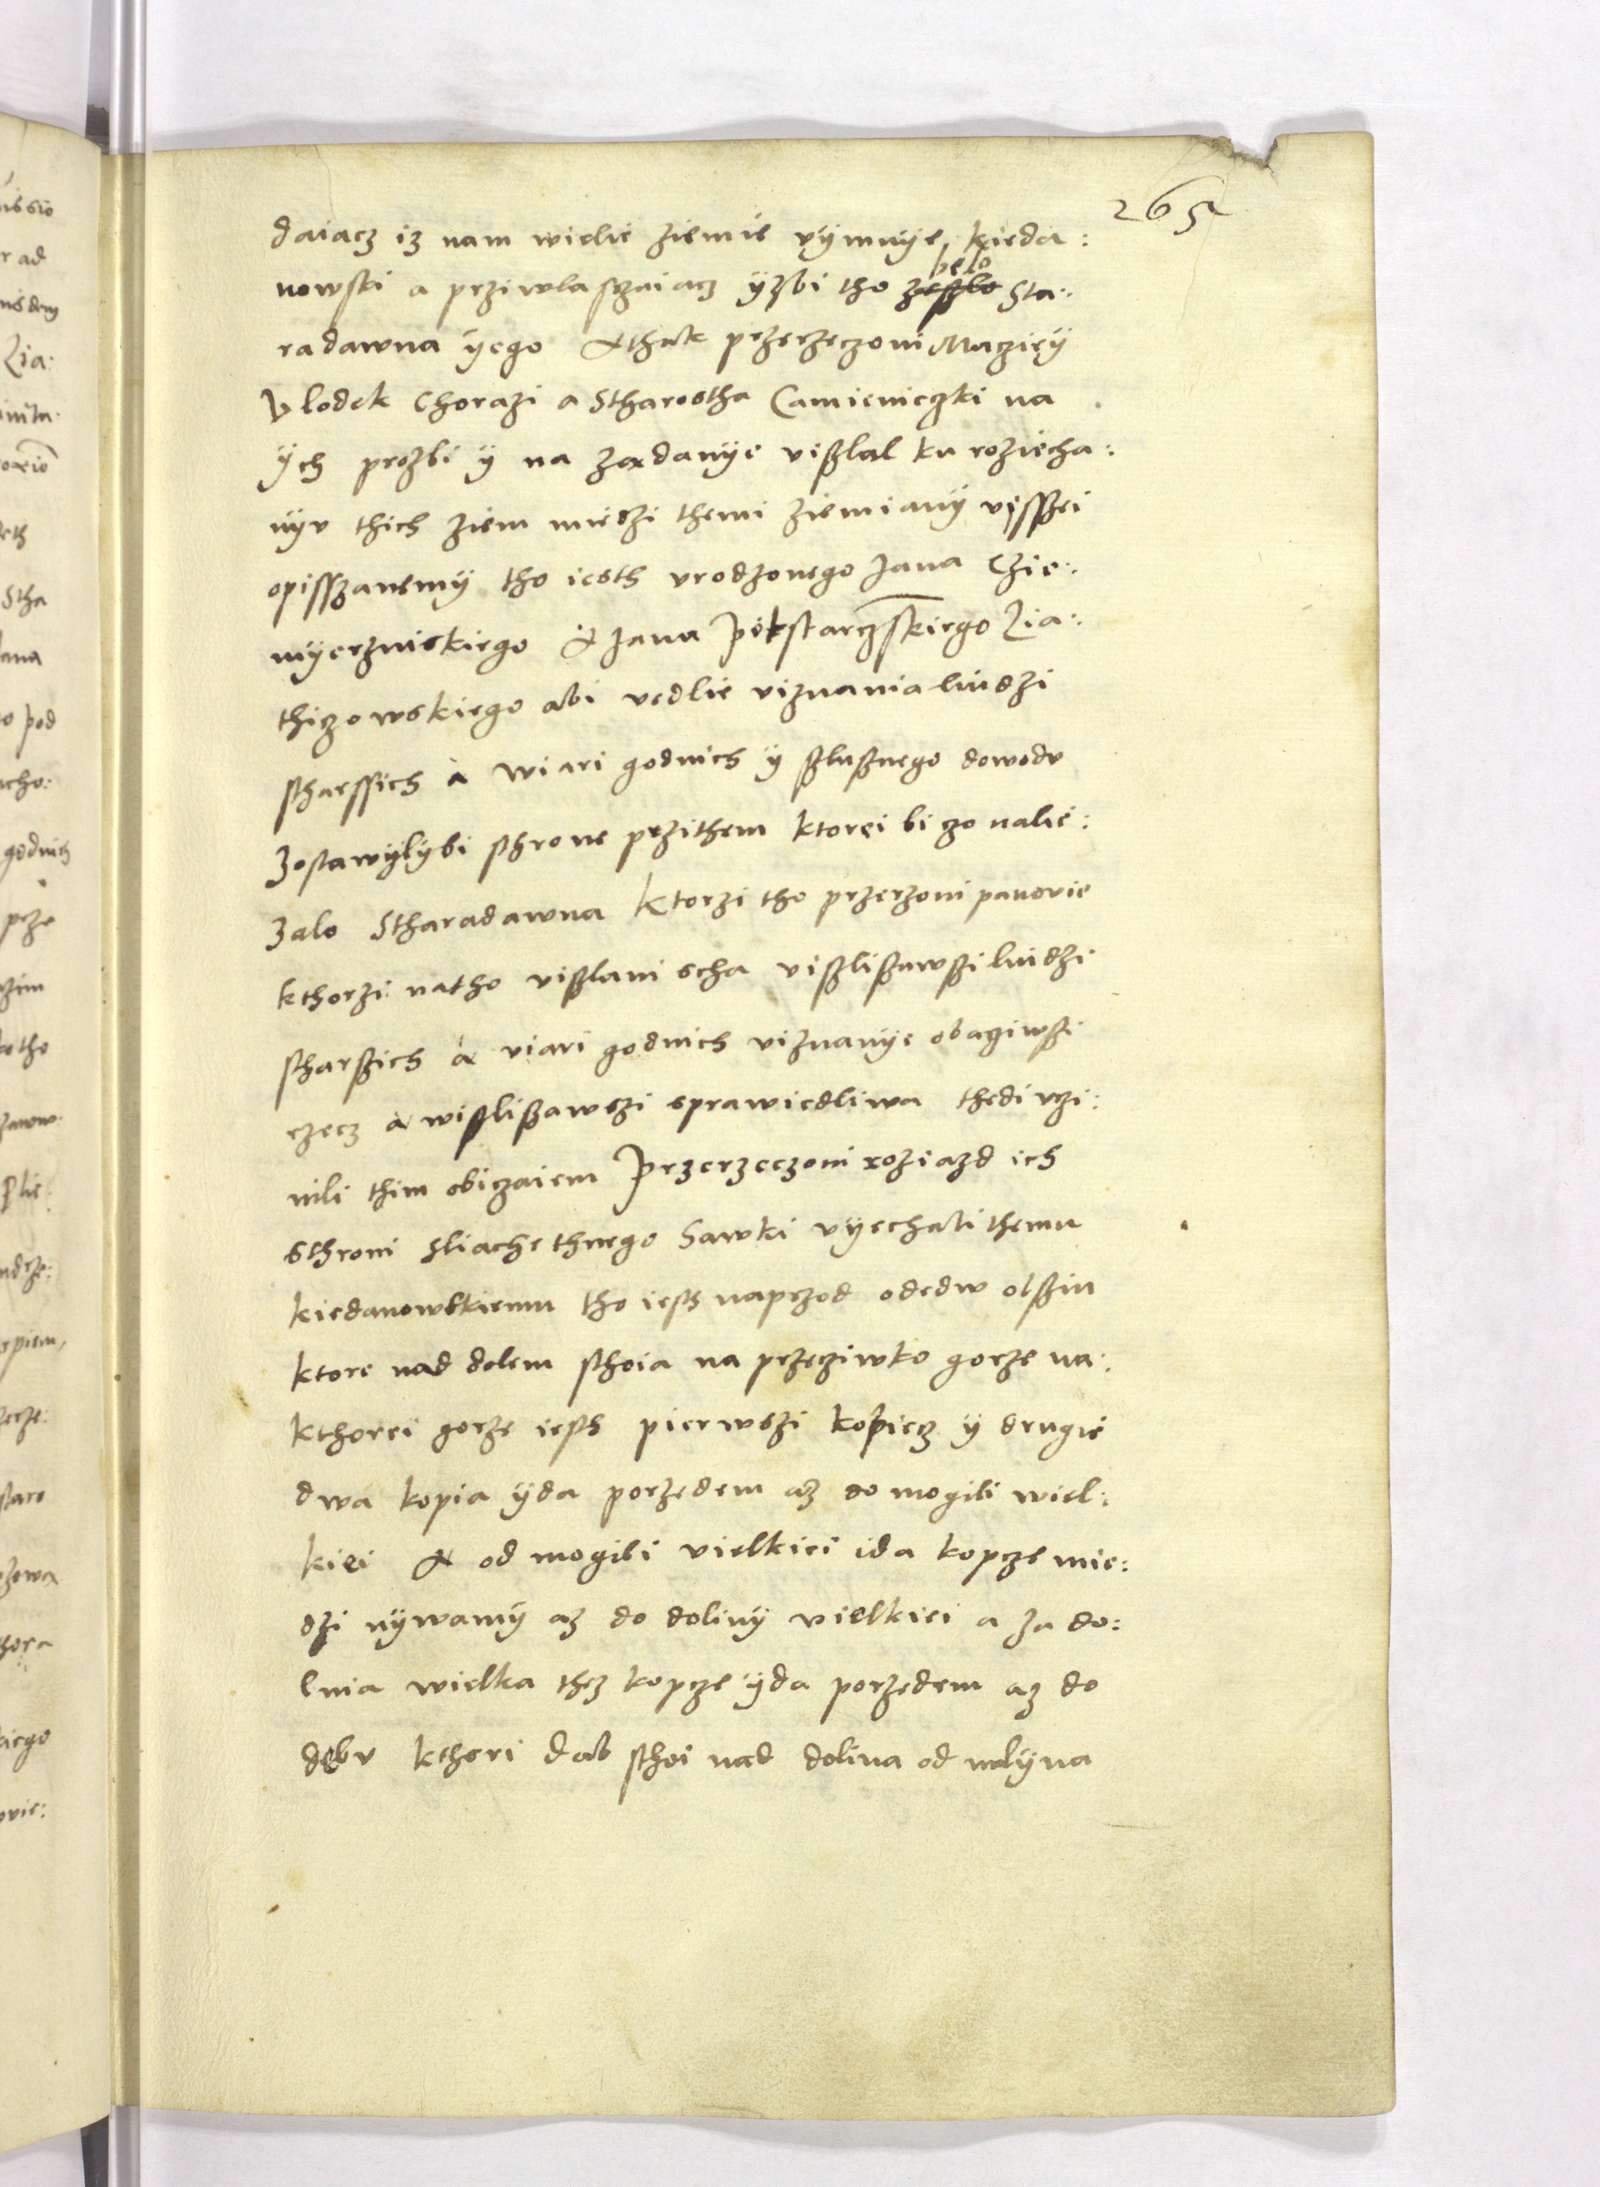 265
daiacz iz nam wielie ziemie vÿmuÿe, kieda:
nowski a prziwlasczaiacz ÿzbi tho zeszlo belo Sta:
radawna ÿego A thak przerzeczoni Macziey
Vlodek Chorazi a Stharostha Camienieczki na
ÿch prozbi ÿ na zadanÿe vißlal ku roziecha:
nÿv thich ziem miedzi themi ziemianÿ visszei
opisszanemÿ tho iesth vrodzonego Jana Czie:
mÿerzniskiego A Jana Pokstarczskiego Lia:
thiczowskiego abi vedlie viznania luidzi
stharssich a wiari godnich ÿ ßlußnego dowodv
Zostawÿlÿbi sthrone przithem ktorei bi czo nalie:
Zalo Stharadawna Ktorzi tho przerzoni panovie
kthorzi natho vißlani scha vißlißawßi luidzi
stharßich a viari godnich viznanÿe obacziwßi
rzecz a wißlißawszi sprawiedliwa thedi vczi:
nili thim obiczaiem Przerzeczoni roziazd ich
sthroni Sliachethnego Sawki vÿechali themu
kiedanowskiemu tho iesth naprzod odedw olßin
ktore nad dolem sthoia na przecziwko gorze na:
kthorei gorze iesth pierwszi kopiecz ÿ drugie
dwa kopia ÿda porzedem az do mogili wiel:
kiei A od mogili vielkiei ida kopcze mie:
dzi nÿwamÿ az do dolinÿ vielkiei a za do:
lnia wielka thez kopcze ÿda porzedem az do
dębv kthori dab sthoi nad dolina od mlÿna